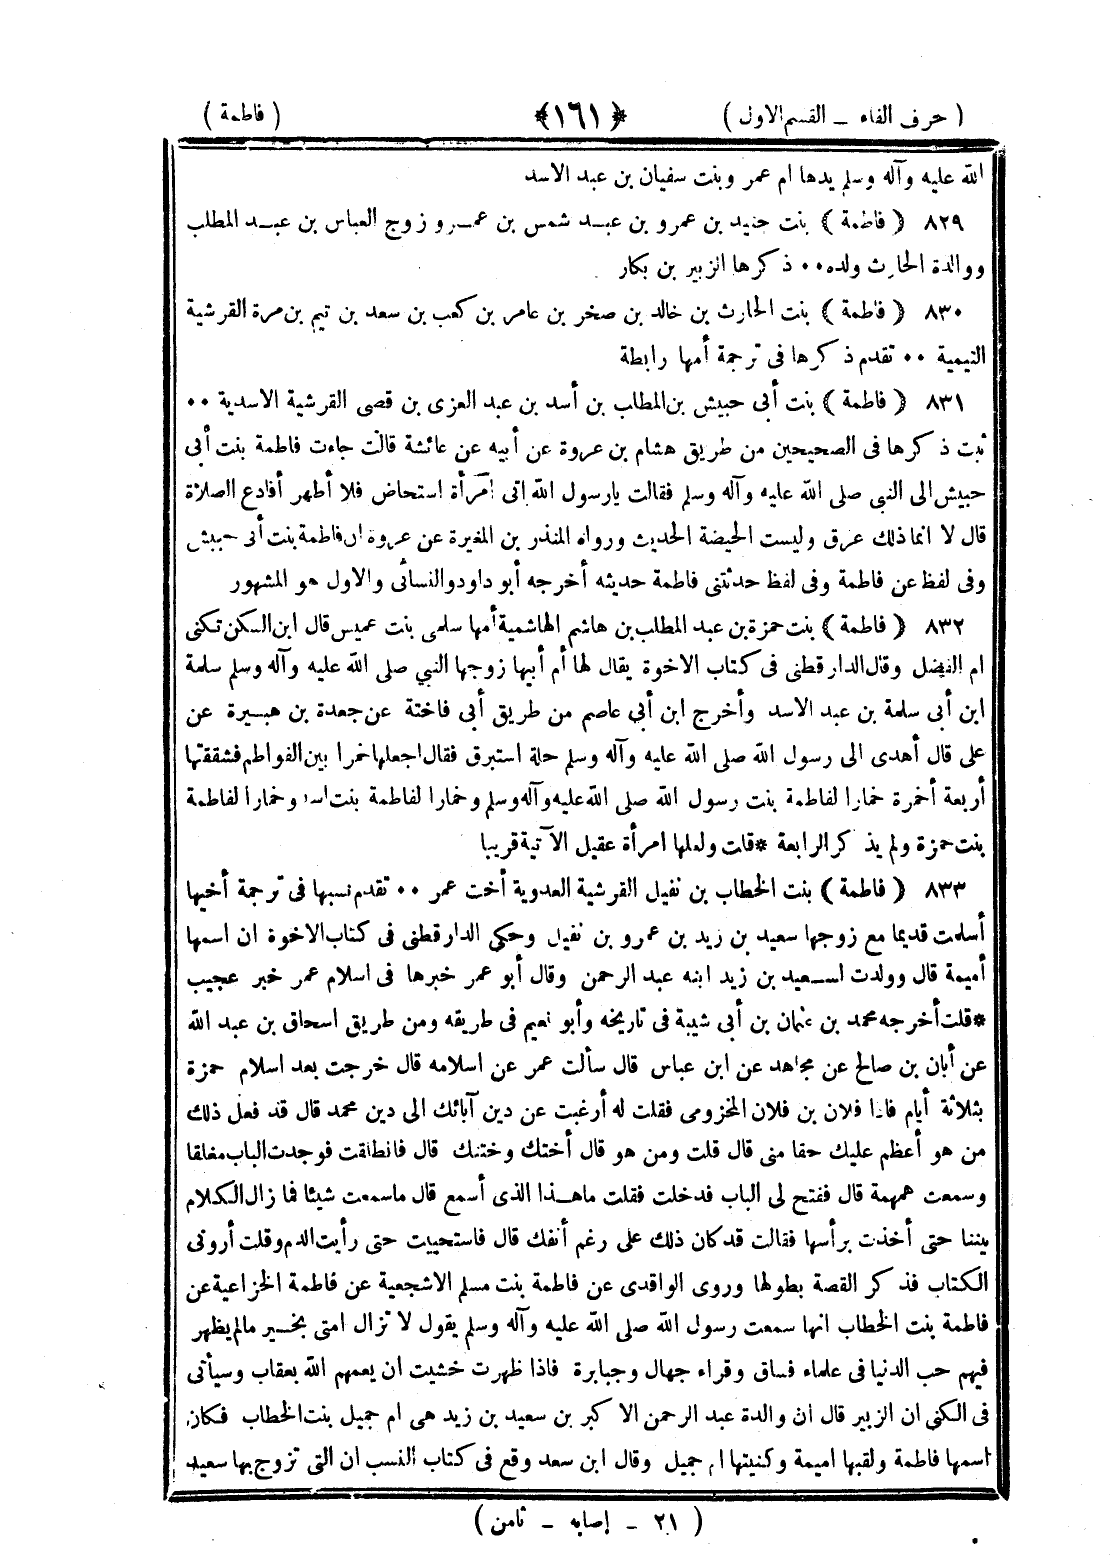 ( حرف الفاء ــ القسم الاول ) ﴿١٦١﴾ ( فاطمة )
الله عليه وآله وسلم يدها ام عمر وبنت سفيان بن عبد الاسد
٨٢٩ ﴿ فاطمة ﴾ بنت جنيد بن عمرو بن عبد شمس بن عمرو زوج العباس بن عبد المطلب
ووالدة الحارث ولده ٠٠ ذكرها الزبير بن بكار
٨٣٠ ﴿ فاطمة ﴾ بنت الحارث بن خالد بن صخر بن عامر بن كعب بن سعد بن تيم بن مرة القرشية
التيمية ٠٠ تقدم ذكرها فى ترجمة أمها رابطة
٨٣١ ﴿ فاطمة ﴾ بنت أبى حبيش بن المطلب بن أسد بن عبد العزى بن قصى القرشية الاسدية ٠٠
ثبت ذكرها فى الصحيحين من طريق هشام بن عروة عن أبيه عن عائشة قالت جاءت فاطمة بنت أبى
حبيش الى النبى صلى الله عليه وآله وسلم فقالت يارسول الله انى امرأة استحاض فلا أطهر أفادع الصلاة
قال لا انما ذلك عرق وليست الحيضة الحديث ورواه المنذر بن المغيرة عن عروة ان فاطمة بنت أبى حبيش
وفى لفظ عن فاطمة وفى لفظ حدثتنى فاطمة حديثه أخرجه أبو داود والنسائى والاول هو المشهور
٨٣٢ ﴿ فاطمة ﴾ بنت حمزة بن عبد المطلب بن هاشم الهاشمية أمها سلمى بنت عميس قال ابن السكن تكنى
ام الفضل وقال الدارقطنى فى كتاب الاخوة يقال لها أم أبيها زوجها النبي صلى الله عليه وآله وسلم سلمة
ابن أبى سلمة بن عبد الاسد وأخرج ابن أبي عاصم من طريق أبى فاختة عن جعدة بن هبيرة عن
على قال أهدى الى رسول الله صلى الله عليه وآله وسلم حلة استبرق فقال اجعلها خمرا بين الفواطم فشققتها
أربعة أخمرة خمارا لفاطمة بنت رسول الله صلى الله عليه وآله وسلم وخمارا لفاطمة بنت اسد وخمارا لفاطمة
بنت حمزة ولم يذكر الرابعة *قلت ولعلها امرأة عقيل الآتية قريبا
٨٣٣ ﴿ فاطمة ﴾ بنت الخطاب بن نفيل القرشية العدوية أخت عمر ٠٠ تقدم نسبها فى ترجمة أخيها
أسلمت قديما مع زوجها سعيد بن زيد بن عمرو بن نفيل وحكى الدارقطنى فى كتاب الاخوة ان اسمها
أميمة قال وولدت لسعيد بن زيد ابنه عبد الرحمن وقال أبو عمر خبرها فى اسلام عمر خبر عجيب
*قلت أخرجه محمد بن عثمان بن أبي شيبة فى تاريخه وأبو نعيم فى طريقه ومن طريق اسحاق بن عبد الله
عن أبان بن صالح عن مجاهد عن ابن عباس قال سألت عمر عن اسلامه قال خرجت بعد اسلام حمزة
بثلاثة أيام فاذا فلان بن فلان المخزومى فقلت له أرغبت عن دين آبائك الى دين محمد قال قد فعل ذلك
من هو أعظم عليك حقا منى قال قلت ومن هو قال أختك وختنك قال فانطلقت فوجدت الباب مغلقا
وسمعت همهمة قال ففتح لى الباب فدخلت فقلت ماهذا الذى أسمع قال ماسمعت شيئا فما زال الكلام
بيننا حتى أخذت برأسها فقالت قد كان ذلك على رغم أنفك قال فاستحييت حتى رأيت الدم وقلت أرونى
الكتاب فذكر القصة بطولها وروى الواقدى عن فاطمة بنت مسلم الاشجعية عن فاطمة الخزاعية عن
فاطمة بنت الخطاب انها سمعت رسول الله صلى الله عليه وآله وسلم يقول لا تزال امتى بخير مالم يظهر
فيهم حب الدنيا فى علماء فساق وقراء جهال وجبابرة فاذا ظهرت خشيت ان يعمهم الله بعقاب وسيأتى
فى الكنى ان الزبير قال ان والدة عبد الرحمن الاكبر بن سعيد بن زيد هى ام جميل بنت الخطاب فكان
اسمها فاطمة ولقبها اميمة وكنيتها ام جميل وقال ابن سعد وقع فى كتاب النسب ان التى تزوج بها سعيد
( ٢١ ــ إصابه ــ ثامن )